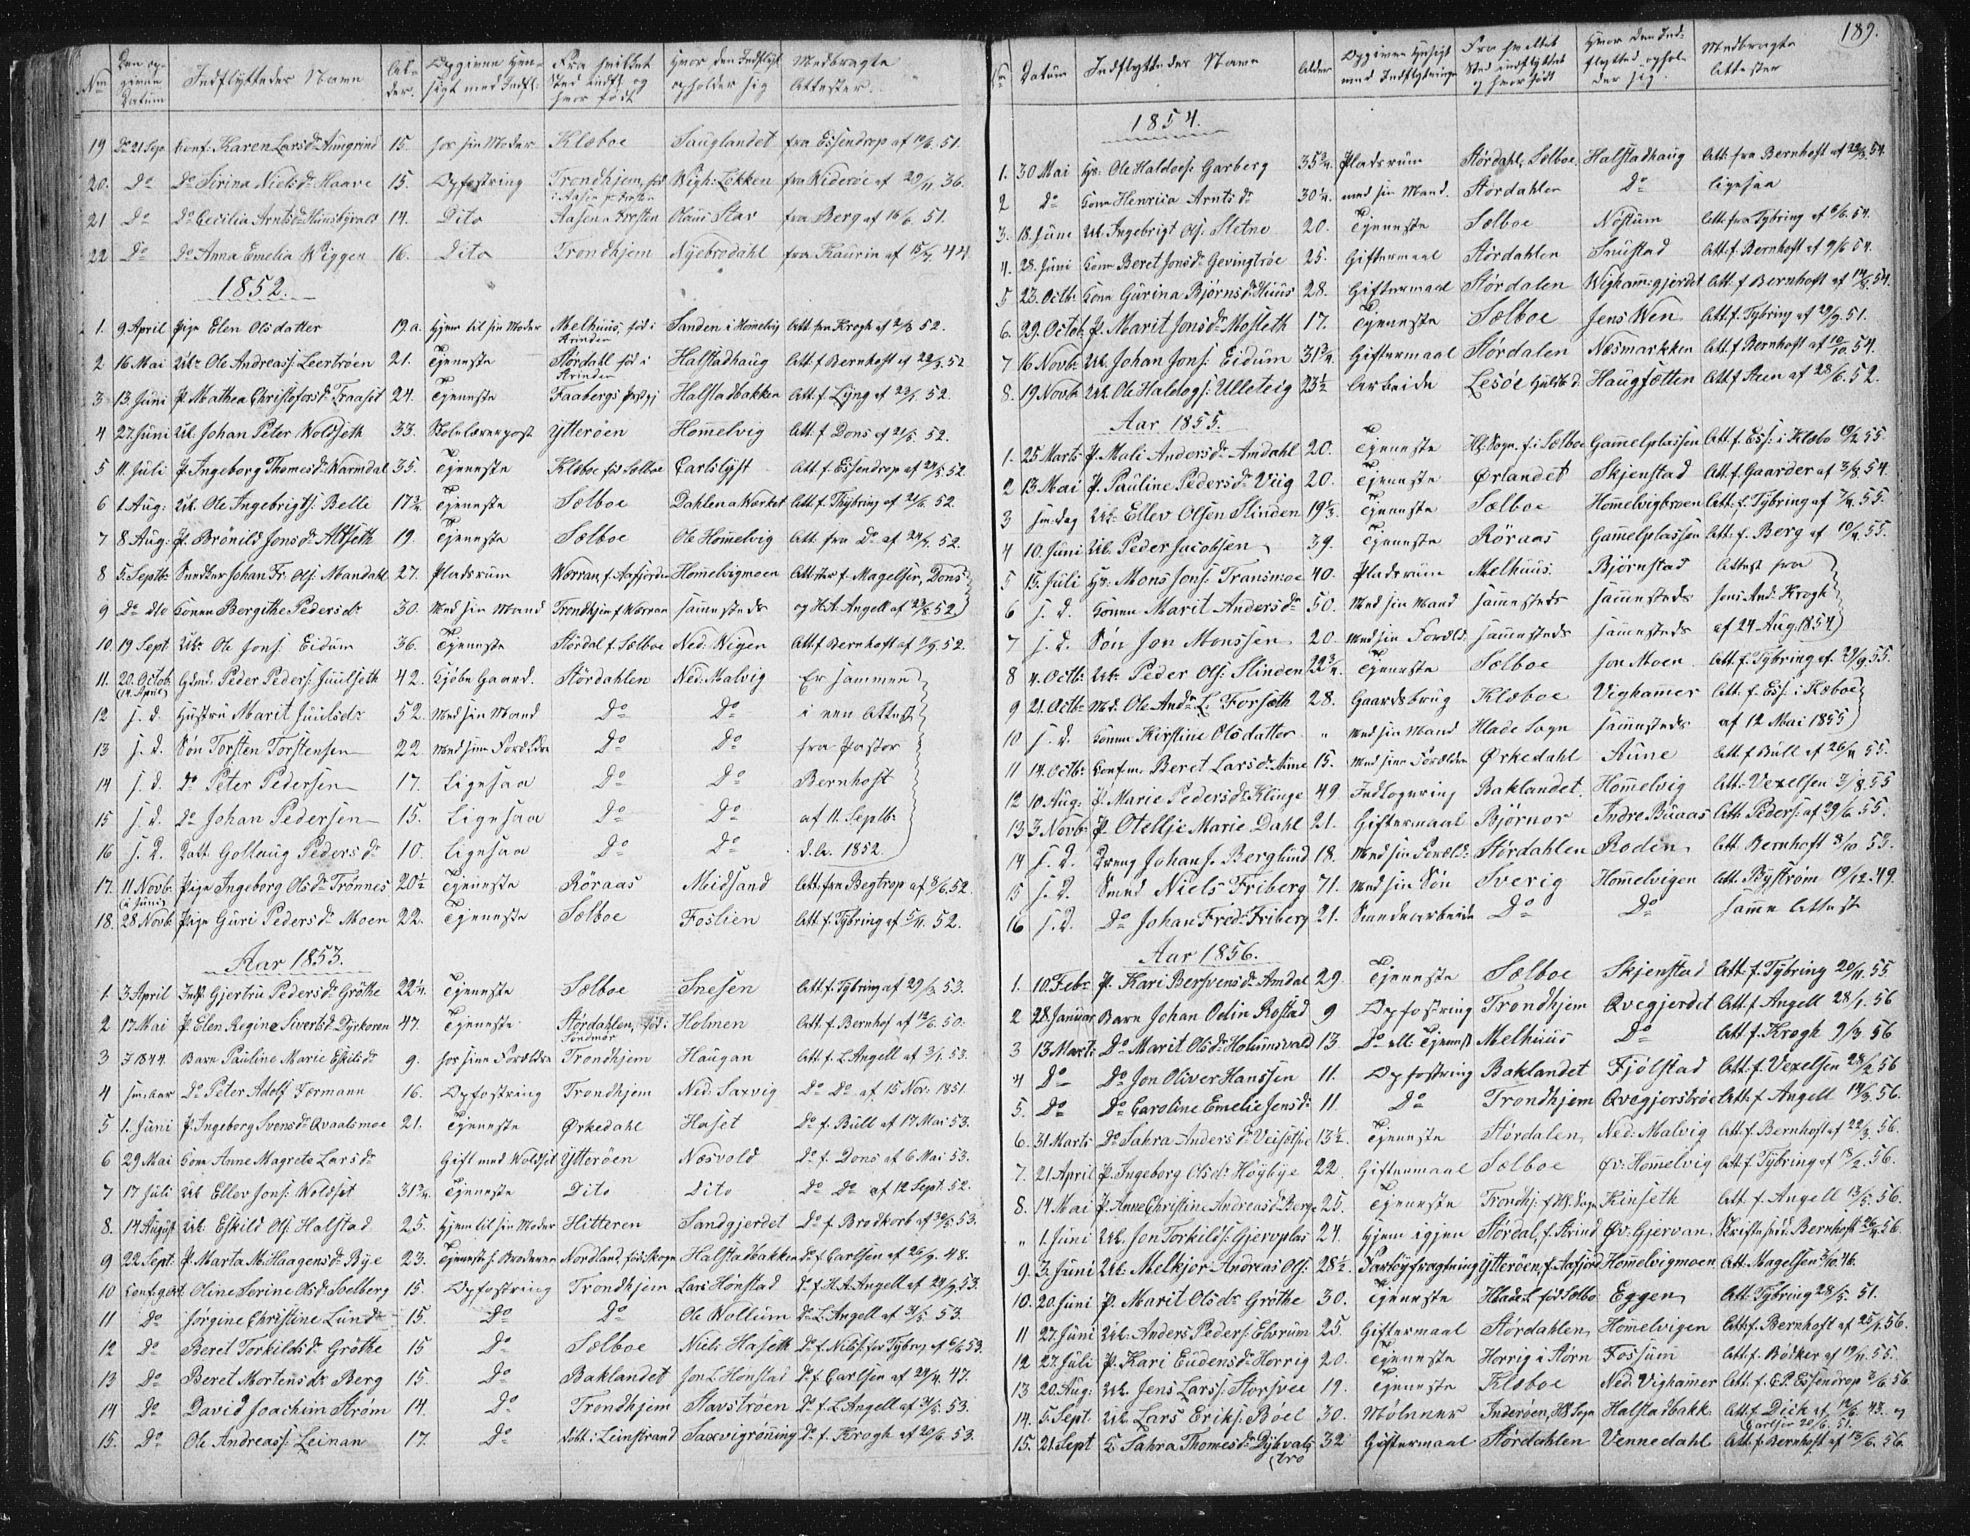 189.
No Den opgivne Datum Indflyttedes Navn Alder Opgiven Hensigt med Indfl: Fra hvilket Sted indfl: og hvor født Hvor den Indflyt opholder sig Medbragte Attester
19 Do 21 Sept. Conf. Karen Larsdr Aungrind 15. hos sin Moder Klæboe Sauglandet fra Essendrop af 51.
20. Do Do Sirina Nielsdr Haave 15. Opfostring Trondhjem, Wigh: Løkken fra Widerøe af 29/11 36.
21 Do Do Cecilia Arntsdr 14. Dito Aasen Olaus Stav fra Berg af 16/6. 51.
22 Do Do Anna Emelia Wiggen 16. Dito Trondhjem Nÿebrodahl fra Kaurin af 15/7 44
1852.
1. 9 April Pige Elen Olsdatter 19 a. hjem til sin Moder Melhuus, fød i Strinden Sanden i Homelvig Att. fra Krogh af 52.
2 16 Mai Uk: Ole Andreass: Leerbrøen 21. Tjeneste Størdall fød i Strinden Halstadhaug Att. f. Bernhoft af 22/3. 52
3 13 Juni P. Mathea Christoforsdr Fraaset 24. Tjeneste Faabergs Halstadbakken Att. f. Lÿng af 52.
4 27. Juni Uk. Johan Peter Woldseth 33. Skolelærerpost Ytterøen Homelvig Att. f. Dons af 21/5. 52.
5 11. Juli P. Ingeborg Thomesdr Warmdal 35. Tjeneste Klæboe fød Sælboe Carlslÿst Att. f. Essendrop af 52.
6 1 Aug: Uk. Ole Ingebrigts: Belle 17¾. Tjeneste Sælboe Dahlen a Værket Att. f. Thÿbring af 21/6. 52.
7 8 Aug: P. Brønild Jonsdr Altseth 19. Tjeneste Sælboe Ole Homelvig Att. fra Do af 52.
8 5. Septbr Smedker Johan Fr. Ols: Mandahl 27. Pladsrum Værran, f. Aafjorden Homelvigmoen Attester f. Magelsen, Dons
9 Do dto Konen Bergithe Pedersdr 30. Med sin Mand Trondhjem f. Værran sammesteds og H.A. Angell af 52
10. 19 Sept Uk. Ole Jons: Eidum 36. Tjeneste Stördal f. Sælboe Ned: Wigen Att. f. Bernhoft af 52.
11. 20. Octob. (14 April) Gdmd. Peder Peders: Juulseth 42. Kjøbe Gaard. Stördahlen Ned: Malvig Er sammen
12 s. d. Hustru Marit Juulsdr 52. Med sin Mand Do Do i een Attest
13 s. d. Søn Torsten Torstensen 22. Med sine Forældre Do Do fra Pastor
14 s. d. Do Peter Pedersen 17. Ligesaa Do Do Bernhoft
15 s. d. Do Johan Pedersen 15. Ligesaa Do Do af 11. Septbr
16 s. d. Datt. Gollaug Pedersdr 10. Ligesaa Do Do d. A. 1852.
17. 11 Novb. (i Juni) Pige Ingeborg Olsdr Trønnes 20½ Tjeneste Röraas Midsand Att. fra Bregtrop af 3/6. 52.
18. 28 Novb Pige Guri Pedersdr Moen 22. Tjeneste Sælboe Foslien Att. f. Tÿbring af 5/11. 52.
Aar 1853.
1. 3 April Indf. Gjertru Pedersdr Gröthe 22¼. Tjeneste Sælboe Snesen Att. f. Tÿbring af 29/3. 53.
2 17. Mai P. Elen Regine Sivertsdr Dÿrkoren 47. Tjeneste Stördahlen, fød: i Sondmør Holmen Att. f. Bernhof af 50.
3 J 1844. Barn Pauline Marie Eskilsdr 9. hos sine Forældre Trondhjem Haugan Att. f. L. Angell af 3/1. 53.
4 sm. Aar Do Peter Adolf Formann 16. Opfostring Trondhjem Ned: Saxvig Do Do af 15 Nov: 1851.
5 1. Juni P. Ingeborg Svensdr Qvaalsmoe 21. Tjeneste Ørkedahl Haset Do f. Bull af 17 Mai 53.
6 29 Mai Kone Anne Magrete Larsdr Gift med Woldset Ytterøen Næsvold Do f. Dons af 6 Mai 53.
7 17 Juli Uk Ellev Jons: Woldset 31¾. Tjeneste Dito Dito Do Do af 12 Sept. 52.
8. 14 August Uk. Eskild Ols: Halstad 25. Hjem til sin Moder Hitteren Sandgjerdet Do f. Brodkorb af 53.
9 22 Sept. P. Marta M. Haagensdr Bÿe 23. Tjeneste h. Broderen Nordland, Halstadbakken Do f. Carlsen af 26/9. 48.
10 Conf. Oct Oline Serine Olsdr Soelberg 15. Opfostring Trondhjem Lars Hönstad Do f. H.A. Angell af 53.
11 Do Jorgine Christine Lund 15. Do Do Ole Wollum Do L. Angell af 53.
12 Do Beret Torkildsdr Gröthe 15 Do Sælboe Niels Haseth Do f. Nils: for Tÿbr. af 53.
13 Do Beret Mortensdr Berg 15. Do Baklandet Jon L. Hönstad Do f. Carlsen af 47.
14 Do David Joachim Ström 14. Do Trondhjem Stavströen Do f. L. Angell af 53.
15. Do Ole Andreass: Leinan 17. Do døbt i Leinstrand Saxvigrøning Do f. Krogh af 20/6. 53.
No Datum Indflyttedes Navn Alder Opgiven Hensigt med Indflytningen Fra hvilket Sted indflyttet og hvor født Hvor den Indflyttede opholder sig Medbragte Attester
1854.
1. 30 Mai Gb: Ole Haldors: Garberg 35¾. Pladsrum Stördahl, Sælboe Halstadhaug Att. fra Bernhoft af 54.
2 do Kone Henrica Arntsdr 30¼. med sin Mand. Stördahlen Do ligesaa
3. 18. Juni Uk. Ingebrigt Ols: Sletne 20. Tjeneste Sælboe Nöstum Att. fra Tÿbring af 54.
4. 28. Juni Kone Beret Jonsdr Gevingtröe 25. Giftermaal Stördahlen Saustad Att. f. Bernhoft af 9/6 54.
5 23. Octb: Kone Gurina Björnsdr Huus 28. Giftermaal Stördalen Wighamgjerdet Att. f. Bernhoft af 54.
6. 29. Octob. P. Marit Jonsdr Mosleth 17. Tjeneste Sælboe Jens Wen Att. f. Tÿbring af 29/9. 51.
7 16 Novb. Uk. Johan Jons: Eidum 31¾. Giftermaal Stördalen Næsmarkken Att. f. Bernhoft af 54.
8. 19 Novb. Uk. Ole Haldogs: Ulleteig 23½ Arbeide Lesöe Haugfætten Att. f. Steen af 28/6. 52.
Aar 1855.
1. 25 Marts P. Mali Andersdr Amdahl 20. Tjeneste Hl. Sogn. f. i Sælboe Gammelplassen Att. f. Ess: i Klæbo 55
2 13. Mai P. Pauline Pedersdr Viig 20. Tjeneste Ørlandet Skjenstad Att. f. Gaarder af 3/8. 54.
3 sm. dag Uk. Ellev Olsen Slinden 19½. Tjeneste Sælboe Homelvigbroen Att. f. Tÿbring af 55.
4 10. Juni Uk. Peder Jacobsen 39. Tjeneste Röraas Gamelplassen Att. f. Berg af 55.
5 15. Juli Gb: Mons Jons: Transmoe 40. Pladsrum Melhuus. Björnstad Attest fra
6 s. d. Konen Marit Andersdr 50. Med sin Mand sammesteds sammesteds Jens And. Krogh
7 s. d. Søn Jon Monssen 20. Med sin Forældr. sammesteds sammesteds af 24 Aug. 1854
8 4. Octb: Uk. Peder Ols: Slinden 22¾. Tjeneste Sælboe Jon Moen Att. f. Tÿbring af. 29/9. 55.
9 21. Octb: Md. Ole Andr. L. Forsæth 28. Gaardsbrug Klæboe Vighamer Att. f. Ess: i Klæboe
10 s. d. Konen Kirstine Olsdatter „ Med sin Mand Hlade Sogn sammesteds af 12 Mai 1855
11 14. Octb: Confm. Beret Larsdr Aune 15. Med sine Forældre Ørkedahl Aune Att. f. Bull af 55.
12 10. Aug: P. Marie Pedersdr Klinge 49. Indlogering Baklandet Homelvig Att. Vexelsen 3/8. 55
13 3 Novb: P. Otellje Marie Dahl 21. Giftermaal Björnor Indre Buaas Att. Peders: af 29/6. 55.
14 s. d. Dreng Johan J. Berglund 18. Med sin Foræld: Stördahlen Roden Att. Bernhoft 53.
15 s. d. Smed Niels Friberg 71. Med sin Søn Sverig Homelvigen Att. Bÿström 19/12. 49.
16 s. d. Do Johan Fred: Friberg 21. Smedearbeide Do Do samme Attest
Aar 1856.
1. 10. Febr. P. Kari Bersvensdr Amdal 29. Tjeneste Sælboe Skjenstad Att. f. Tÿbring 20/11. 55
2 28. Januar Barn Johan Odin Rostad 9 Opfostring Trondhjem Qvegjerdet Att. f. Angell 28/1. 56
3 13. Marts Do Marit Olsdr Holumsvald 13. Do ell. Tjenest Melhuus Do Att. f. Krogh 9/3. 56
4 Do Do Jon Oliver Hanssen 11. Opfostring Baklandet Fjölstad Att. f. Vexelsen 28/2. 56
5. Do Do Caroline Emelie Jensdr 11. Do Trondhjem Qvegjerströe Att. f. Angell 14/3. 56.
6. 31 Marts Do Sahra Andersdr 13½. Tjeneste Stördalen, Ned: Malvig Att. f. Bernhoft af 22/3. 56.
7. 21. April P. Ingeborg Olsdr Högbÿe 22 Giftermaal Sælboe Øv: Homelvig Att. f. Tÿbring af 56.
8. 14. Mai P. Anne Christine Andreasdr Berge 25. Tjeneste Trondhj: f. Hl. Sogn Kinseth Att. f. Angell 13/5. 56.
„ 1. Juni Uk. Jon Torkilds: Gjervplas 24. Hjem igjen Stördal, f. Strind Øv. Gjervan, Skriftseddel Bernhoft 56.
9. 3. Juni Uk. Melkjor Andreas Ols: 28½. Fartöyfragtning Ytterøen, f. Aafjord Homelvigmoen Att. Magelsen 46.
10. 20. Juni P. Marit Olsdr Gröthe 30. Tjeneste Hlade f. fød Sælbo Eggen Att. Tÿbring 28/5. 51.
11 27. Juni Uk. Anders Peders: Elvrum 25. Giftermaal Stördahlen Homelvigen Att. f. Bernhoft af 56.
12 27. Juli P. Kari Eudensdr Horrig 20. Tjeneste Horrig i Störn Fossum Att. f. Bödker af 55.
13 20. Aug. Uk. Jens Larss: Storsvee 19. Tjeneste Klæboe Ned: Vighamer Att. f. E.P. Essendrop 56.
14. 5. Sept. Uk. Lars Eriks: Böel 30. Mölnner Inderøen, Hl. Sogn Halstadbakk Att. f. Dick af 43. og Carlsen 20/6. 51.
15. 21. Sept E. Sahra Thomesdr Dÿbvals(bro 32 Giftermaal Stördahlen Vennedahl Att. f. Bernhoft af 13/6. 56.